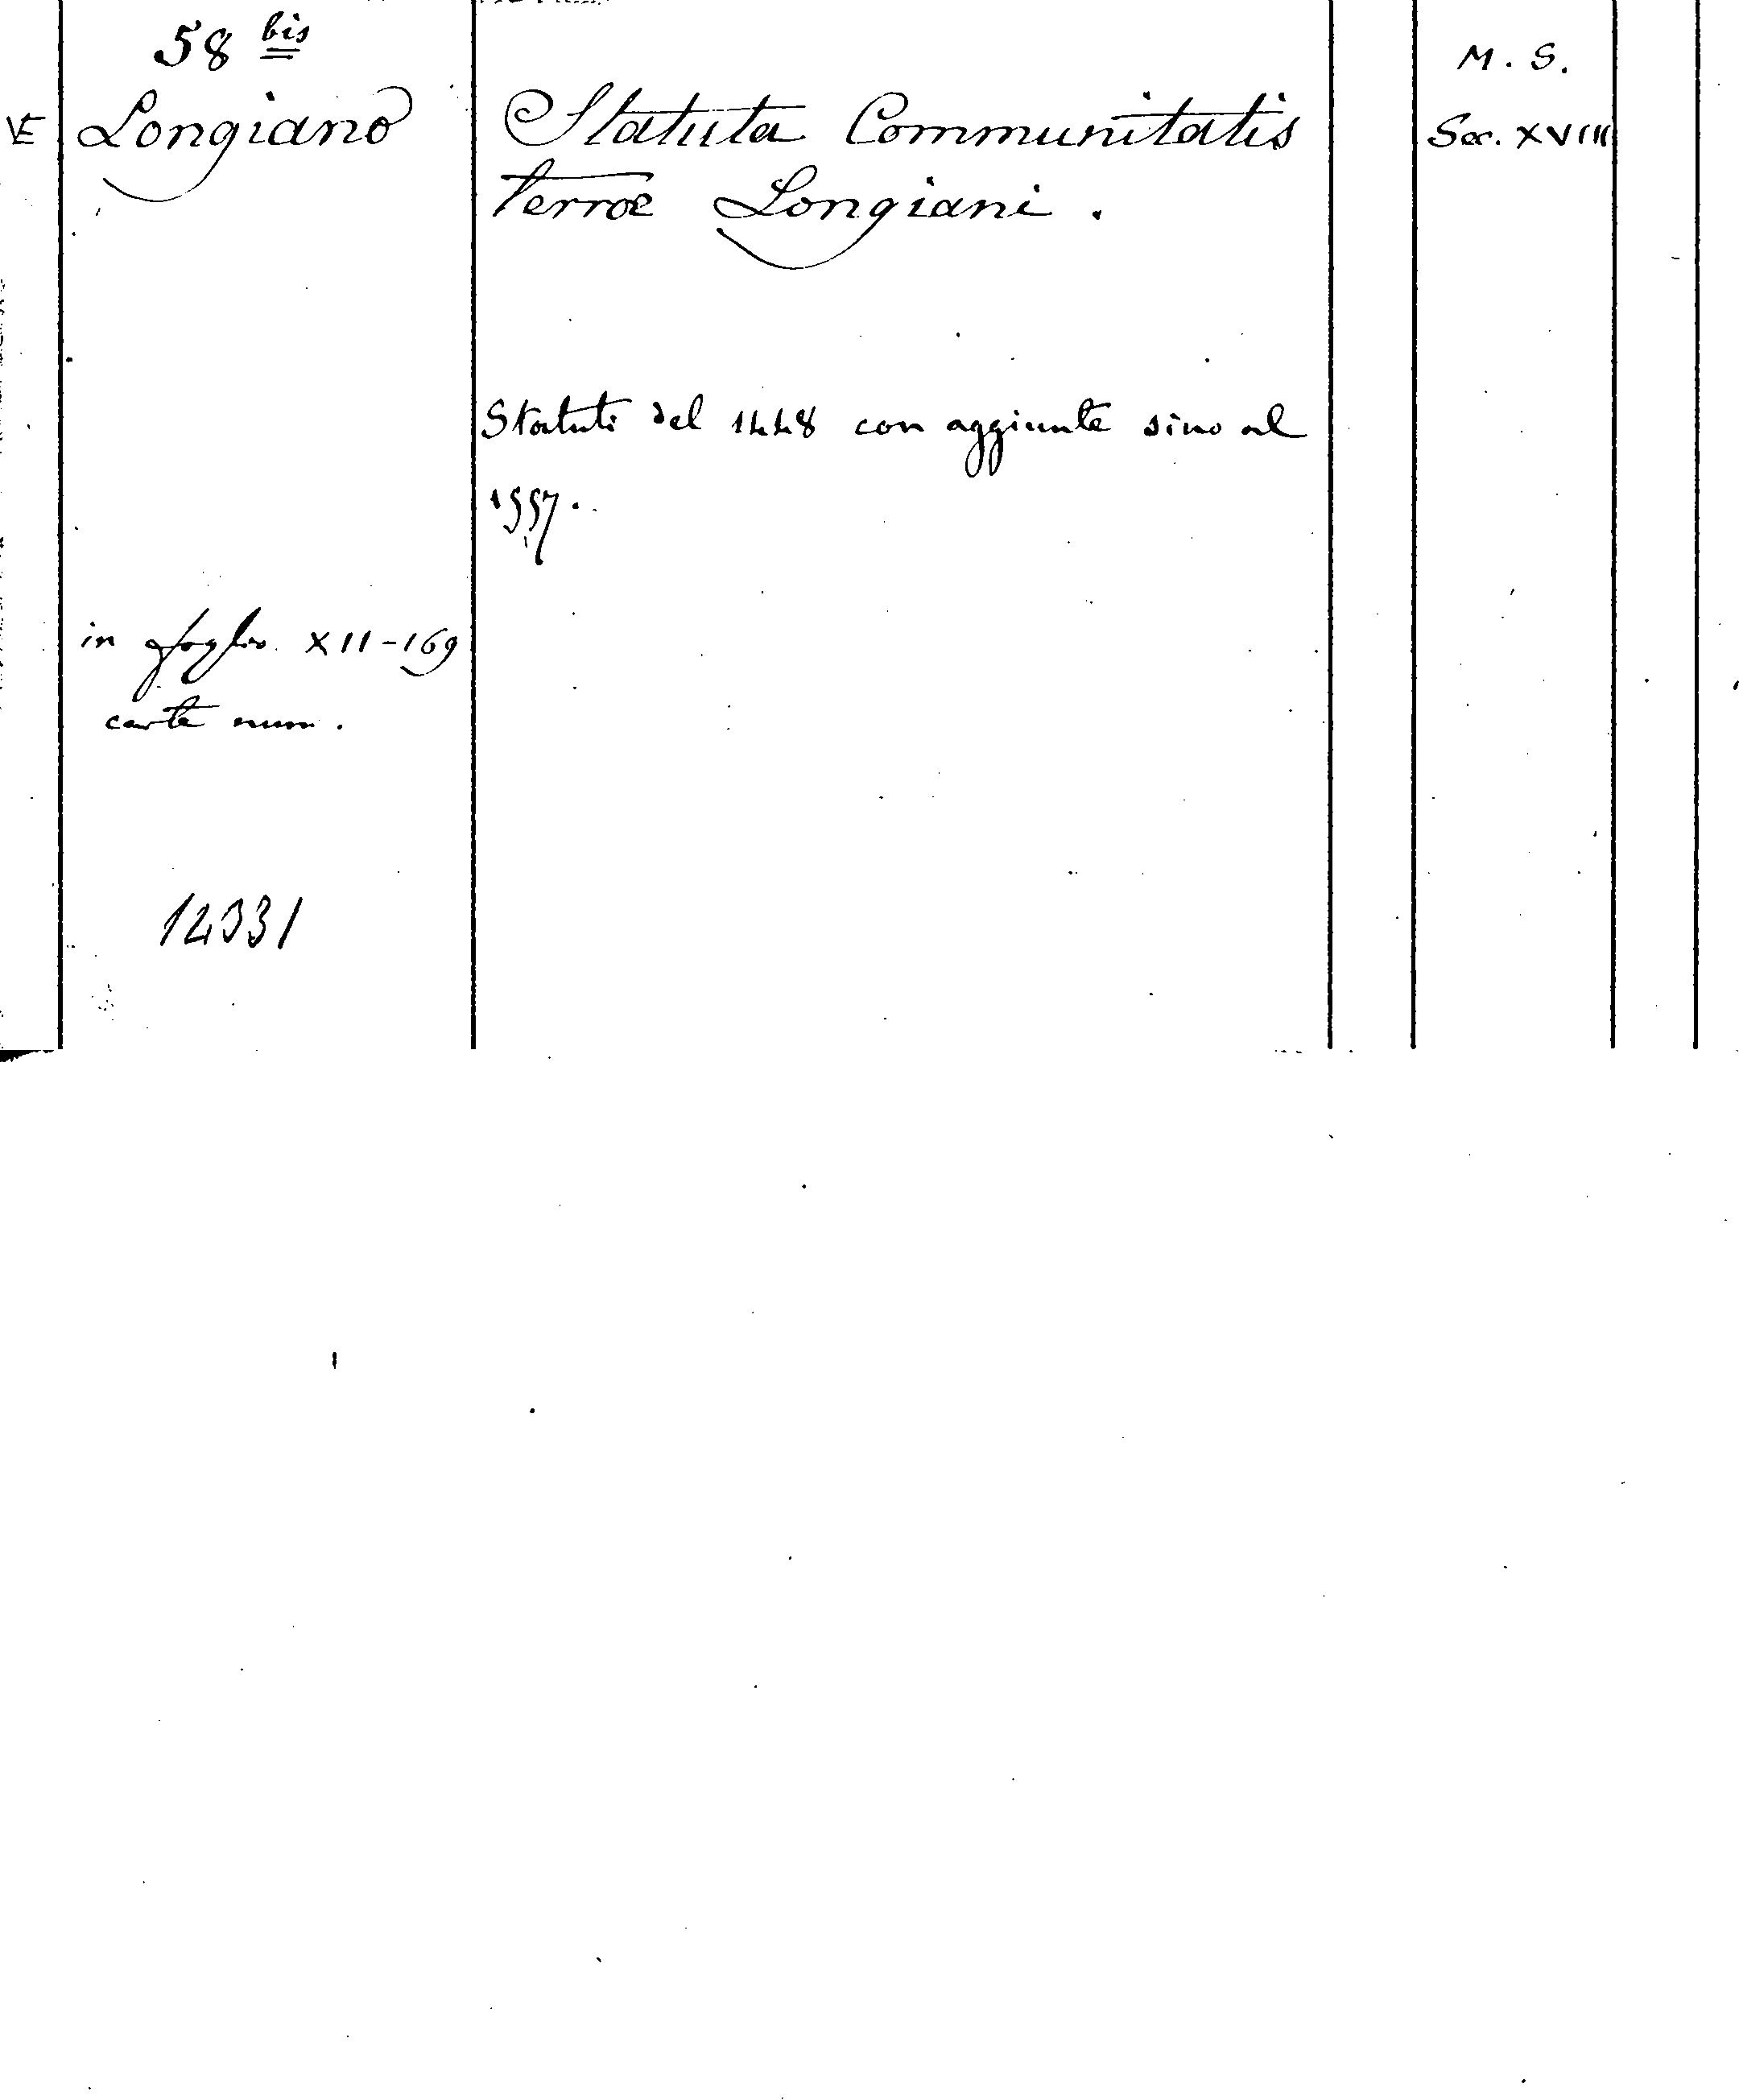 58 bis
VE Longiano
Statuta Communitatis
terræ Longiani.
Statuti del 1448 con aggiunte sino al
1557.
in foglio XII-169
carte num.
12331
M. S.
Sec. XVIII